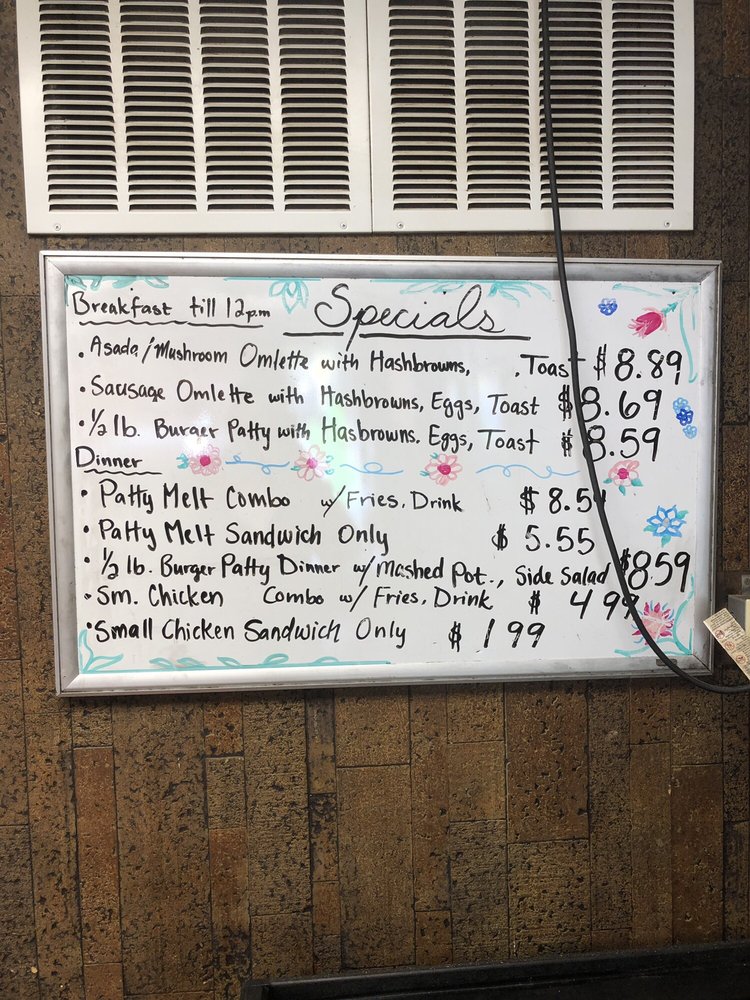 Breakfast till 12pm
Specials
• Asada/Mushroom Omlette with Hashbrowns, , Toast $8.89
• Sausage Omlette with Hashbrowns, Eggs, Toast $8.69
• 1/2 lb. Burger Patty with Hasbrowns, Eggs, Toast $8.59
Dinner
• Patty Melt Combo w/Fries, Drink $8.5
• Patty Melt Sandwich Only $5.55
• 1/2 lb. Burger Patty Dinner w/Mashed Pot., Side Salad $859
• Sm. Chicken Combo w/ Fries, Drink $4 99
• Small Chicken Sandwich Only $1 99